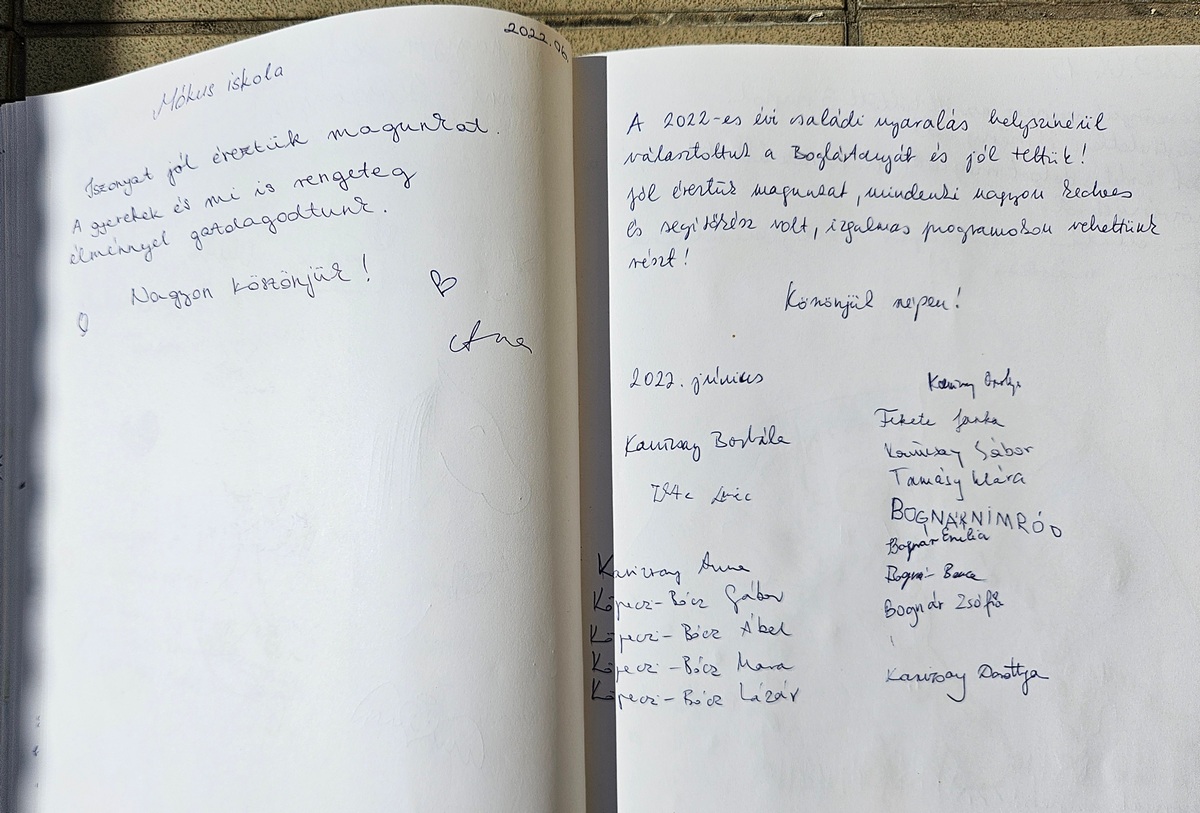 2022.06
Mókus iskola
Iszonyat jól éreztük magunkat.
A gyerekek és mi is rengeteg
élménnyel gazdagodtunk.
Nagyon köszönjük!
A 2022-es évi családi nyaralás helyszínéül
választottuk a Boglártanyát és jól tettük!
Jól éreztük magunkat, mindenki nagyon kedves
és segítőkész volt, izgalmas programokon vehettünk
részt!
Köszönjük szépen!
2022. június
Kanizsay Borbála
Kanizsay Anna
Köpeczi-Bócz Gábor
Köpeczi-Bócz Ábel
Köpeczi-Bócz Mara
Köpeczi-Bócz Lázár
Fekete Janka
Kanizsay Gábor
Tamásy Klára
BOGNÁR NIMRÓD
Bognár Emília
Bognár Bence
Bognár Zsófia
Kanizsay Dorottya